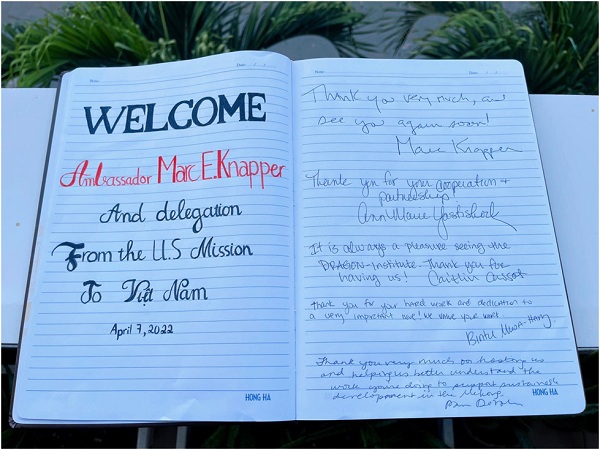 WELCOME
Ambassador Marc E. Knapper
And delegation
From the U.S Mission
To Việt Nam
April 7, 2022
HONG HA
Thank you very much, and
see you again soon!
Marc Knapper
Thank you for your cooperation +
partnership
Ann Marie Yastishock
It is always a pleasure seeing the
DRAGON-Institute. Thank you for
having us! Caitlin
Thank you for your hard work and dedication to
a very important issue! We value your work.
Thank you very much on hosting us
and helping us better understand the
work you're doing to support sustainable
development in the Mekong.
HONG HA